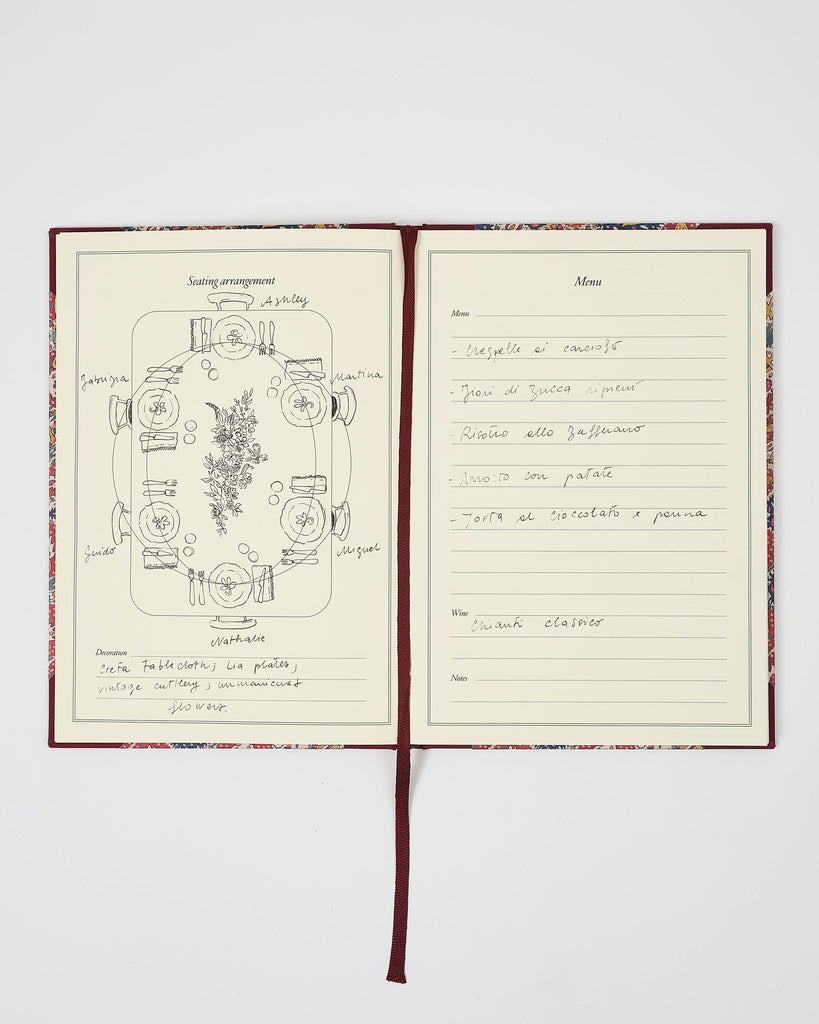 Seating arrangement
Ashley
Gabrigia
Martina
Guido
Miguel
Nathalie
Decoration
Creta Tablecloth; Lia plates;
vintage cutlery;
flowers.
Menu
Menu
- Crespelle ai carciofi
- Fiori di zucca ripieni
- Risotto allo zafferano
- Arrosto con patate
- Torta al cioccolato e panna
Wine
Chianti classico
Notes